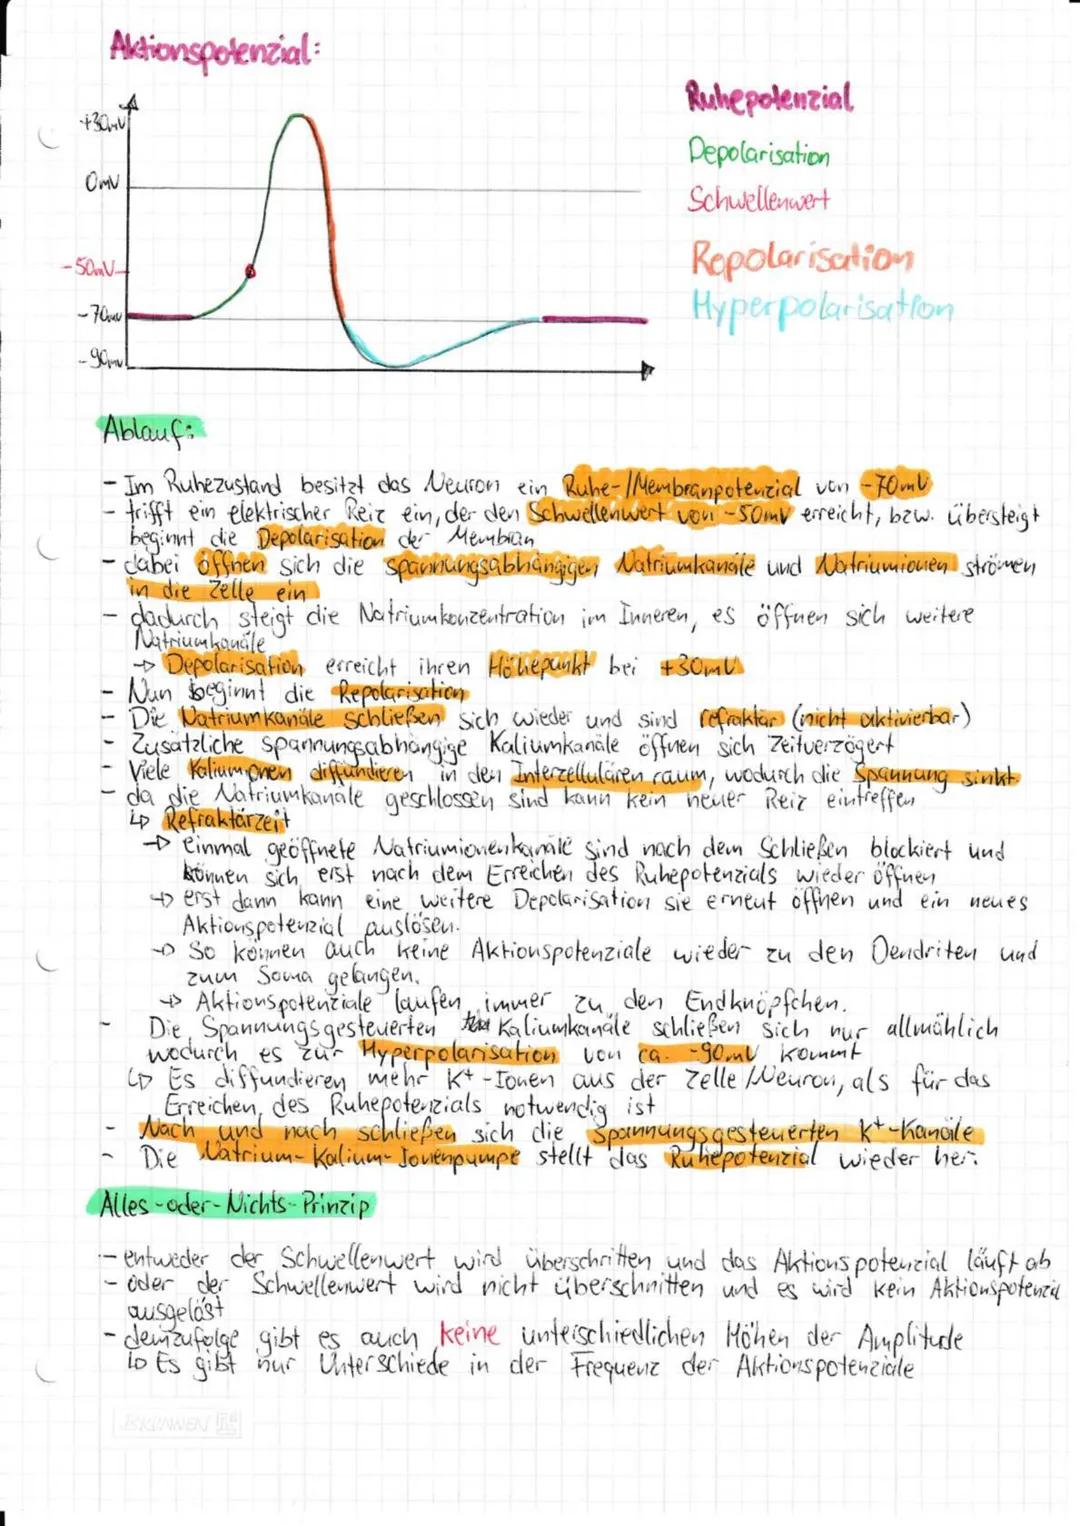 Aktionspotenzial:
+30mV
0mV
-50mV
-70mV
-90mV
Ruhepotenzial
Depolarisation
Schwellenwert
Repolarisation
Hyperpolarisation
Ablauf:
- Im Ruhezustand besitzt das Neuron ein Ruhe-/Membranpotenzial von -70mV
- trifft ein elektrischer Reiz ein, der den Schwellenwert von -50mV erreicht, bzw. übersteigt
beginnt die Depolarisation der Membran
- dabei öffnen sich die spannungsabhängigen Natriumkanäle und Natriumionen strömen
in die Zelle ein
- dadurch steigt die Natriumkonzentration im Inneren, es öffnen sich weitere
Natriumkanäle
→ Depolarisation erreicht ihren Höhepunkt bei +30mV
- Nun beginnt die Repolarisation
- Die Natriumkanäle schließen sich wieder und sind refraktär (nicht aktivierbar)
- Zusätzliche spannungsabhängige Kaliumkanäle öffnen sich zeitverzögert
- Viele Kaliumionen diffundieren in den Interzellulären raum, wodurch die Spannung sinkt.
- da die Natriumkanäle geschlossen sind kann kein neuer Reiz eintreffen
↳ Refraktärzeit
→ einmal geöffnete Natriumionenkanäle sind nach dem Schließen blockiert und
können sich erst nach dem Erreichen des Ruhepotenzials wieder öffnen
→ erst dann kann eine weitere Depolarisation sie erneut öffnen und ein neues
Aktionspotenzial auslösen.
→ So können auch keine Aktionspotenziale wieder zu den Dendriten und
zum Soma gelangen.
→ Aktionspotenziale laufen immer zu den Endknöpfchen.
- Die Spannungsgesteuerten Kaliumkanäle schließen sich nur allmählich
wodurch es zur Hyperpolarisation von ca. -90mV kommt
↳ Es diffundieren mehr K+-Ionen aus der Zelle/Neuron, als für das
Erreichen des Ruhepotenzials notwendig ist
- Nach und nach schließen sich die Spannungsgesteuerten K+-Kanäle
- Die Natrium-Kalium-Ionenpumpe stellt das Ruhepotenzial wieder her.
Alles-oder-Nichts-Prinzip
- entweder der Schwellenwert wird überschritten und das Aktionspotenzial läuft ab
- oder der Schwellenwert wird nicht überschritten und es wird kein Aktionspotenzial
ausgelöst
- demzufolge gibt es auch keine unterschiedlichen Höhen der Amplitude
↳ Es gibt nur Unterschiede in der Frequenz der Aktionspotenziale